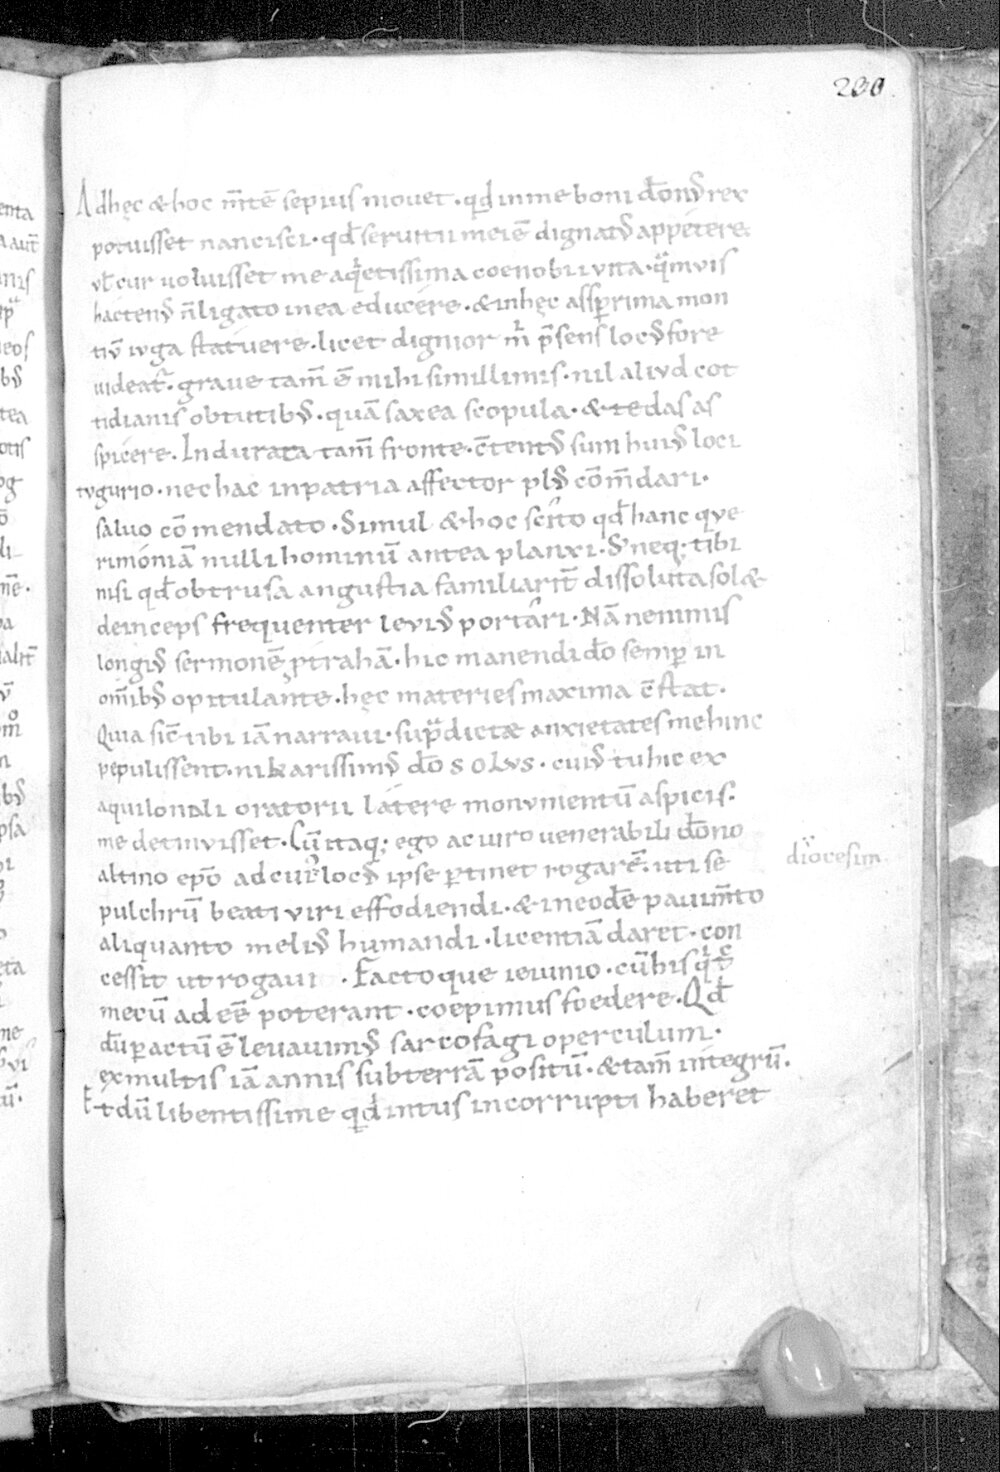 230
Adhęc & hoc m̅te̅ sepius mouet · qd̅ in me boni do̅n9 rex
potuisset nancisci · qd̅ seruitii mei e̅ dignat9 appetere
vl̅ cur uoluisset me aq̇etissima coenobii vita · qͣmvis
hacten9 n̅ ligato in ea educere · & in hęc assꝑrima mon
tiv̅ ivga statuere · licet dignior ṁ p̅sens loc9 fore
uideat᷑ · graue tam̅ e̅ mihi simillimis · nil alivd cot
tidianis obtutib9 · qua̅ saxea scopula · & tedas as
spicere · Indurata tam̅ fronte · c̅tent9 sum hui9 loci
tvgurio · nec hac in patria affector pl9 co̅m̅dari ·
saluo co̅mendato · Simul & hoc scito qd̅ hanc qve
rimonia̅ nulli hominu̅ antea planxi · S; neq; tibi
nisi qd̅ obtrusa angustia familiarit̅ dissoluta sol&
deinceps frequenter levi9 portari · Na̅ ne nimis
longi9 sermone̅ ptraha̅ · hic manendi do̅ semꝑ in
om̅ib9 opitulante · hęc materies maxima c̅stat ·
Quia sic̅ tibi ia̅ narraui · supͣdictæ anxietates me hinc
pepulissent · ni karissim9 do̅ SOLVS · cui9 tu hic ex
aquilonali oratorii latere monvmentu̅ aspicis ·
me detinvisset · Cu̅ itaq; ego ac uiro uenerabili do̅no
altino ep̅o ad cui9 loc9 ipse ꝑtinet rogare̅ · uti se
diocesim
pulchru̅ beati viri effodiendi · & in eode̅ pauim̅to
aliquanto meli9 humandi · licentia̅ daret · con
cessit ut rogaui · Factoque ieiunio · cu̅ his q̇t9
mecu̅ adee̅ poterant · coepimus foedere · Qd̅
du̅ ꝑactu̅ e̅ levauim9 sarcofagi operculum ·
ex multis ia̅ annis subterra̅ positu̅ · & tam̅ integru̅ ·
Et du̅ libentissime qd̅ intus incorrupti haberet